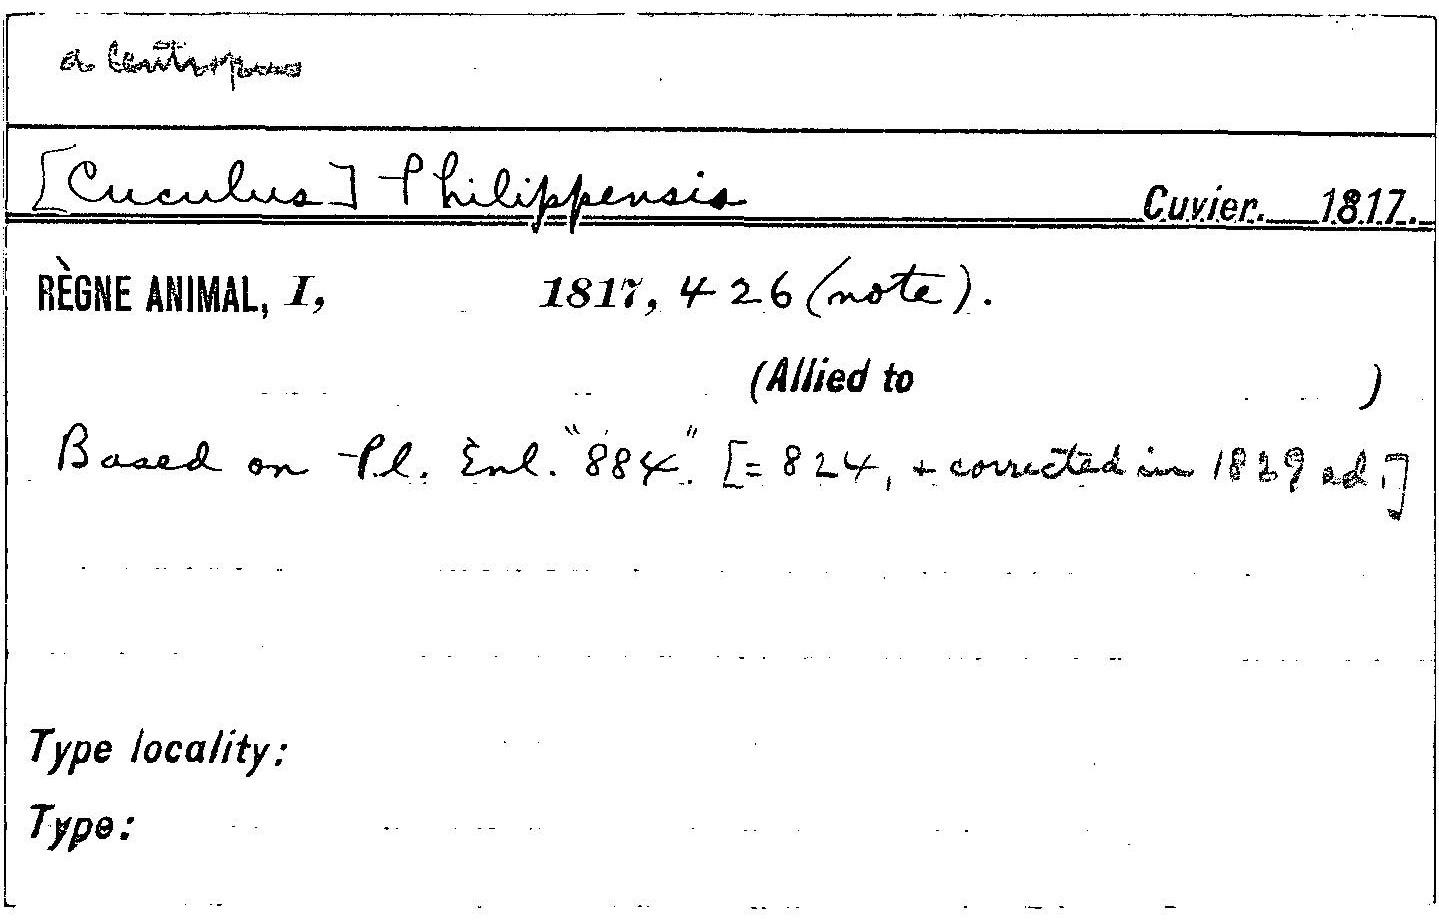 a Centropus
[Cuculus] Philippensis
Cuvier. 1817.
RÈGNE ANIMAL, I, 1817, 426 (note).
(Allied to )
Based on Pl. Enl. "884". [= 824, + corrected in 1829 ed.]
Type locality:
Type: